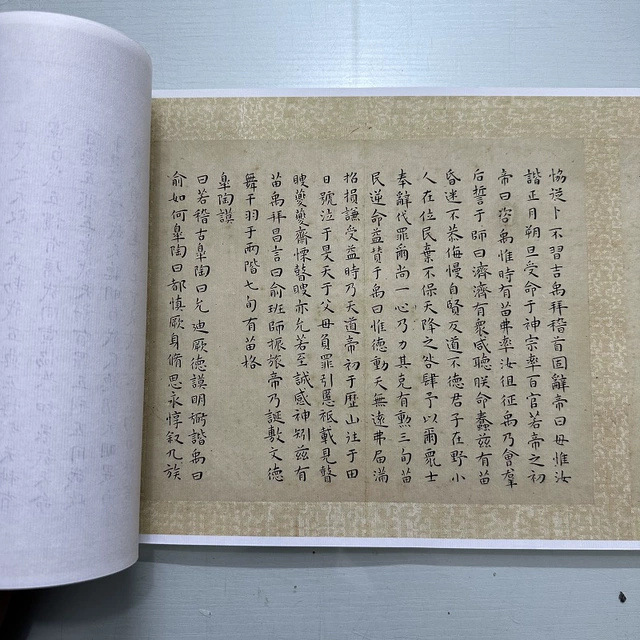 恊從卜不習吉禹拜稽首固辭帝曰毋惟汝
諧正月朔旦受命于神宗率百官若帝之初
帝曰咨禹惟時有苗弗率汝徂征禹乃會羣
后誓于師曰濟濟有衆咸聽朕命蠢茲有苗
昏迷不恭侮慢自賢反道不德君子在野小
人在位民棄不保天降之咎肆予以爾衆士
奉辭伐罪爾尚一心乃力其克有勲三旬苗
民逆命益贊于禹曰惟德動天無遠弗届滿
招損謙受益時乃天道帝初于歷山往于田
日號泣于旻天于父母負罪引慝祗載見瞽
瞍夔夔齋慄瞽瞍亦允若至諴感神矧茲有
苗禹拜昌言曰俞班師振旅帝乃誕敷文德
舞干羽于兩階七旬有苗格
臯陶謨
曰若稽古臯陶曰允迪厥德謨明弼諧禹曰
俞如何臯陶曰都慎厥身脩思永惇敘九族